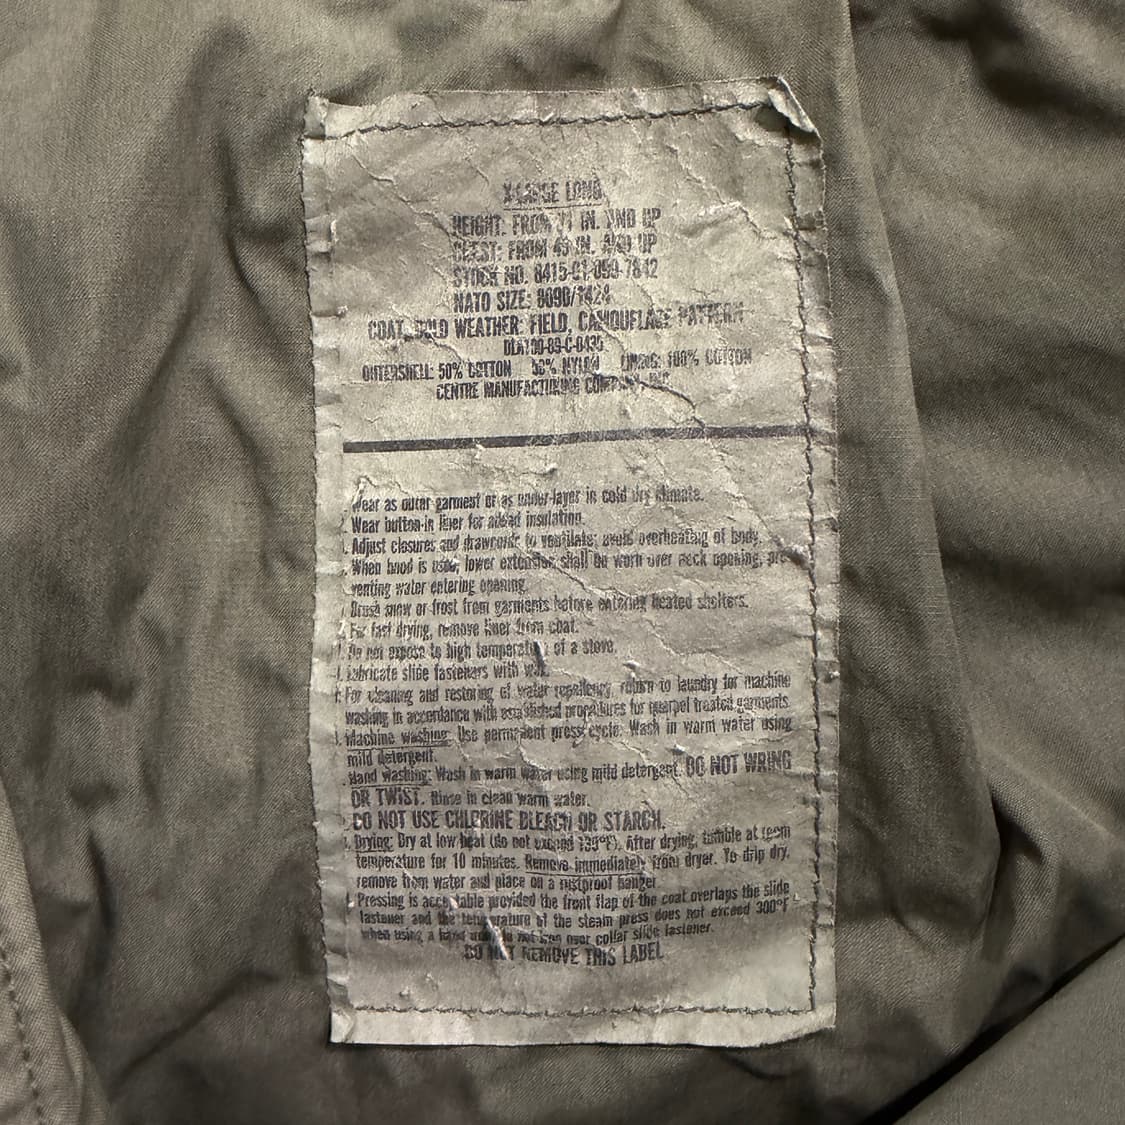 X-LARGE LONG
HEIGHT: FROM 71 IN. AND UP
CHEST: FROM 45 IN. AND UP
STOCK NO. 8415-01-099-7842
NATO SIZE: 8090/1424
COAT, COLD WEATHER: FIELD, CAMOUFLAGE PATTERN
DLA100-89-C-0435
OUTERSHELL: 50% COTTON 50% NYLON LINING: 100% COTTON
CENTRE MANUFACTURING COMPANY, INC.
Wear as outer garment or as under-layer in cold dry climate.
Wear button-in liner for added insulation.
Adjust closures and drawcords to ventilate; avoid overheating of body.
When hood is used, lower extension shall be worn over neck opening, pre-
venting water entering opening.
Brush snow or frost from garments before entering heated shelters.
For fast drying, remove liner from coat.
Do not expose to high temperature of a stove.
Lubricate slide fasteners with wax.
For cleaning and restoring of water repellency, return to laundry for machine
washing in accordance with established procedures for quarpel treated garments.
Machine washing: Use permanent press cycle. Wash in warm water using
mild detergent.
Hand washing: Wash in warm water using mild detergent. DO NOT WRING
OR TWIST. Rinse in clean warm water.
DO NOT USE CHLORINE BLEACH OR STARCH.
Drying: Dry at low heat (do not exceed 130°F). After drying, tumble at room
temperature for 10 minutes. Remove immediately from dryer. To drip dry,
remove from water and place on a rustproof hanger
Pressing is acceptable provided the front flap of the coat overlaps the slide
fastener and the temperature of the steam press does not exceed 300°F
when using a hand do not iron over collar slide fastener.
DO NOT REMOVE THIS LABEL